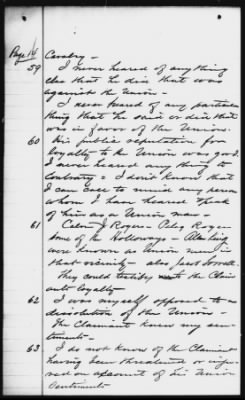 Page 14 Cavalry -
59 I never heared of anything
else that he did that was
against the Union -
I never heared of any particular
thing that he said or did that
was in favor of the Union.
60 His public reputation for
loyalty to the Union was good.
I never heared any thing to
contrary = I don't know that
I can call to mind any person
whom I have heared speak
of him as a Union man -
61 Rogers Rogers
some of the Holloways - Also they
were known as Union men in
that vicinity - also
They could testify to the Claim
ants loyalty
62 I was myself opposed to a
dissolution of the Union -
The Claimant knew my sen-
timents -
63 I do not know of the Claimant
having been threatened or inju-
red on account of his Union
Sentiments